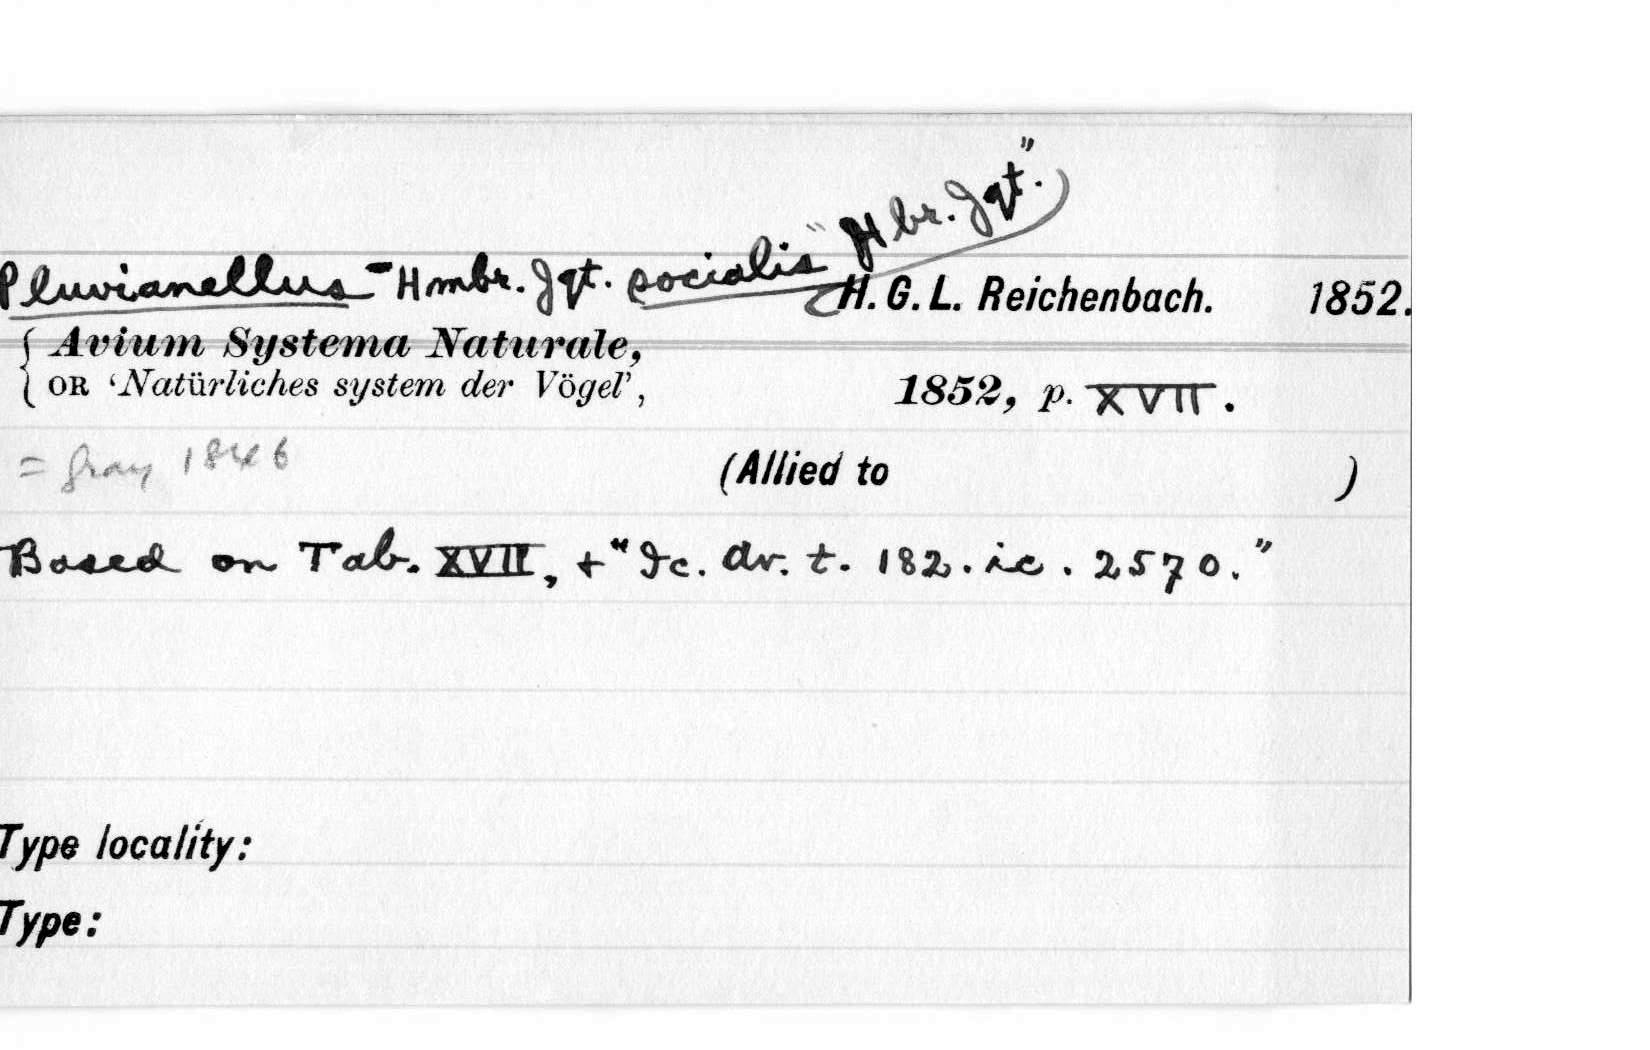 Pluvianellus - Hmbr. Jqt. socialis "Hbr. Jqt."
H. G. L. Reichenbach. 1852.
{ Avium Systema Naturale,
{ OR 'Natürliches system der Vögel', 1852, p. XVII.
= Gray 1846
(Allied to )
Based on Tab. XVII, + "Ic. av. t. 182. ic. 2570."
Type locality:
Type: